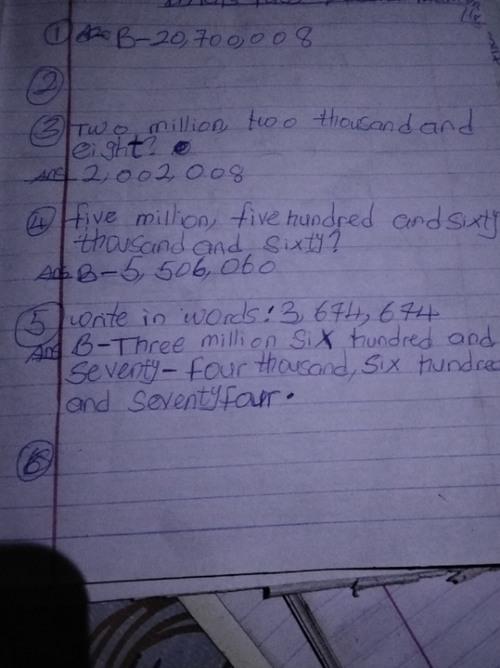 ① Ans B-20,700,008
②
③ Two million, two thousand and
eight?
Ans 2,002,008
④ five million, five hundred and sixty
thousand and sixty?
Ans B-5,506,060
⑤ write in words: 3,674,674
Ans B-Three million six hundred and
seventy-four thousand, six hundred
and seventyfour.
⑥